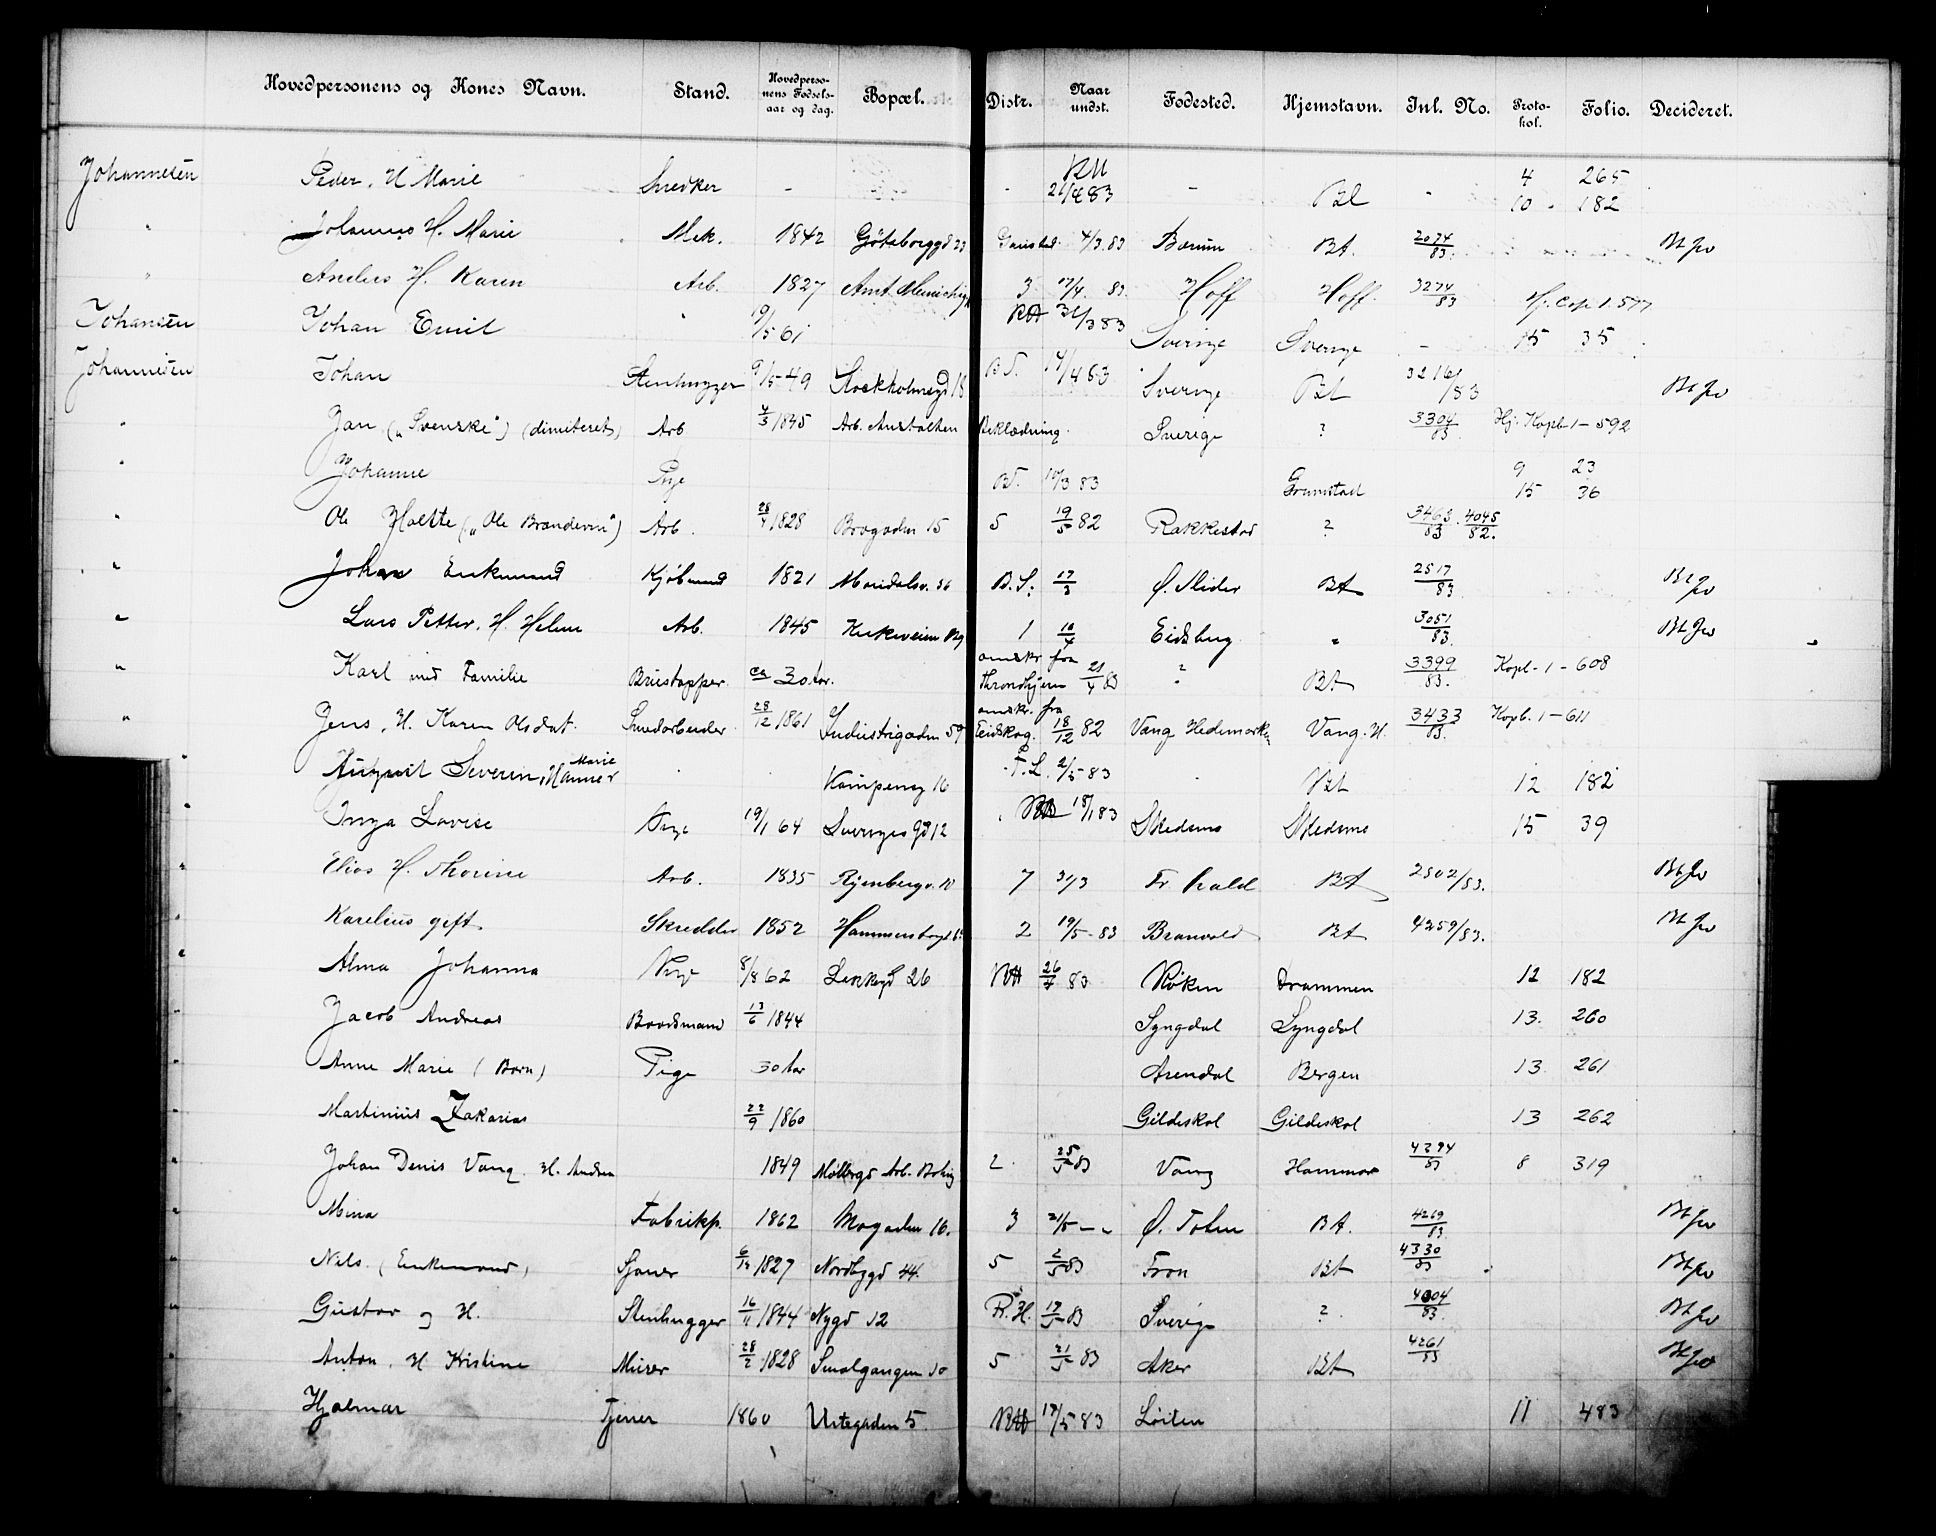 Hovedpersonens og Kones Navn. Stand. Hovedpersonens Fødselsaar og dag. Bopæl. Distr. Naar undst. Fødested. Hjemstavn. Inl. No. Protokol. Folio. Decideret.
Johannesen Peder, H Marie Snedker - - RH 21/4 83 - Bl - 4 265
10 182
" Johannes H. Marie Mek. 1842 Göteborggd 23 Gaustad 4/3 83 Bærum BA. 2074/83. Bt Jw
" Anders H. Karen Arb. 1827 3 17/4 83. Hoff Hoff. 3274/83 Hj. Cop 1. 577
Johansen Johan Emil " 19/5 61 RH 31/3 83 Sverige Sverge - 15 35
Johannesen Johan Stenhugger 9/5 49 Stockholmsgd 18 BS. 4/4 83 Sverige Bt 3216/83 Bt Jw
" Jan ("Svenske") (dimiteret) Arb 4/3 1845 Arb. Anstalten Beklædning. Sverige ? 3304/83. Hj. Kopb 1 - 592
" Johanne Pige BS. 10/3 83 Grimstad 9 23
15 36
" Ole Holtte ("Ole Brændevin") Arb. 28/4 1828 Brogaden 15 5 19/5 82 Rakkestad ? 3463/83. 4045/82.
" Johan Enkemand Kjøbmand 1821 Maridalsv. 36 B.S: 17/3 Ø. Slidre BA 2517/83 Bt Jw
" Lars Petter, H. Helene Arb. 1845 Kirkeveien 1 10/4 Eidsberg " 3051/83. Bt Jw
" Karl med Familie Brustapper ca 30 Aar. omskr fra Throndhjem 21/4 83 ? BA 3399/83. Kopb - 1 - 608
" Jens, H. Karen Olsdat. Smedarbeider 28/12 1861 Industrigaden 59 omskr. fra Eidskog. 18/12 82 Vang Hedemarken Vang. H. 3433/83. Kopb. 1 - 611
" August Severin, H Marie Hanne Kampeng 16 F.L. 2/5 83 Bt 12 182
Inga Lovise Pige 19/1 64 Sveriges gd 12 RH 18/1 83 Skedsmo Skedsmo 15 39
" Elias H. Thorine Arb. 1835 Ryenbergv. 10 7 31/3 Fr. hald BA 2502/83. Bt Jw
" Karelius gift Skredder 1852 Hammersborg 2 19/5 - 83 Branvold BA 4259/83. Bt Jw
" Alma Johanna Pige 8/8 62 Lakkegd 26 RH 26/4 83 Røken Drammen 12 182
" Jacob Andreas Baadsmand 13/6 1844 Lyngdal Lyngdal 13. 260
" Anne Marie (Barn) Pige 30 Aar Arendal Bergen 13 261
" Martinius Zakarias 22/9 1860 Gildeskol Gildeskol 13 262
" Johan Denis Vang. H. Andrea 1849 Møllergd Arb. Bolig 2. 25/5 83 Vang Hammar 4294/83 8 319
" Mina Fabrikp. 1862 Mogaden 16. 3 21/5 - " Ø. Toten BA. 4269/83. Bt Jw
" Nils. (Enkemand) Sjauer 6/12 1827 Nordbygd 44. 5 2/5 83 Fron Bt 4330/83 Bt Jw
" Gustav og H. Stenhugger 16/11 1844 Nygd 12 R.H. 17/5 83 Sverige ? 4304/83. Bt Jw
" Anton, H Kristine Murer 28/2 1828 Smalgangen 10 5 21/5 83 Aker BA 4261/83 Bt Jw
Hjalmar Tjener 1860 Urtegaden 5. RH 17/5 83 Løiten 11 483